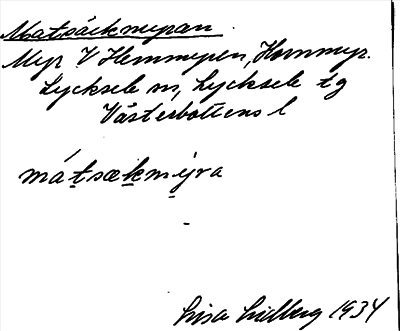 Matsäckmyran
Myr V Hemmyren, Hornmyr.
Lycksele sn, Lycksele tg
Västerbottens l
mátsækmýra
Lisa Lidberg 1934